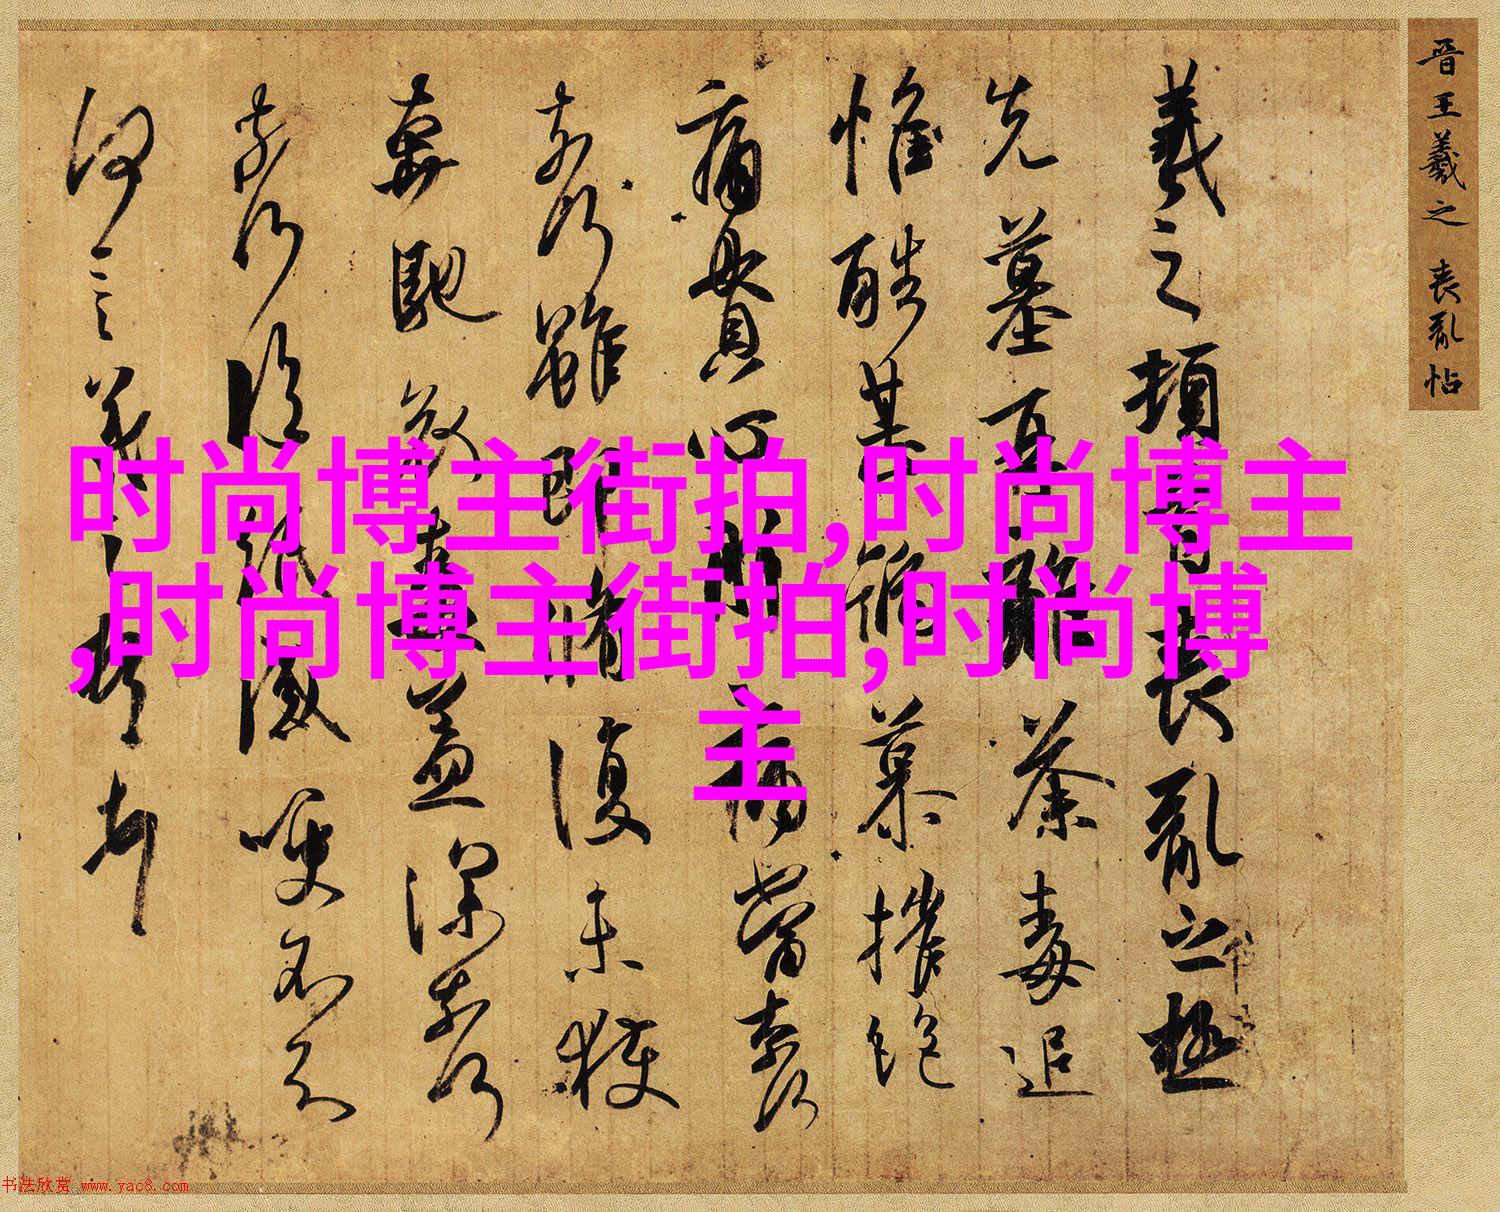 晋王羲之 喪亂帖
羲之頓首喪亂之極
先墓再離荼毒追
惟酷甚號慕摧絕
痛貫心肝痛當奈何
奈何雖即脩復未獲
奔馳哀毒益深奈何
奈何臨紙感哽不知
何言羲之頓首頓首
时尚博主街拍,时尚博主
,时尚博主街拍,时尚博
主
书法欣赏 www.yac8.com